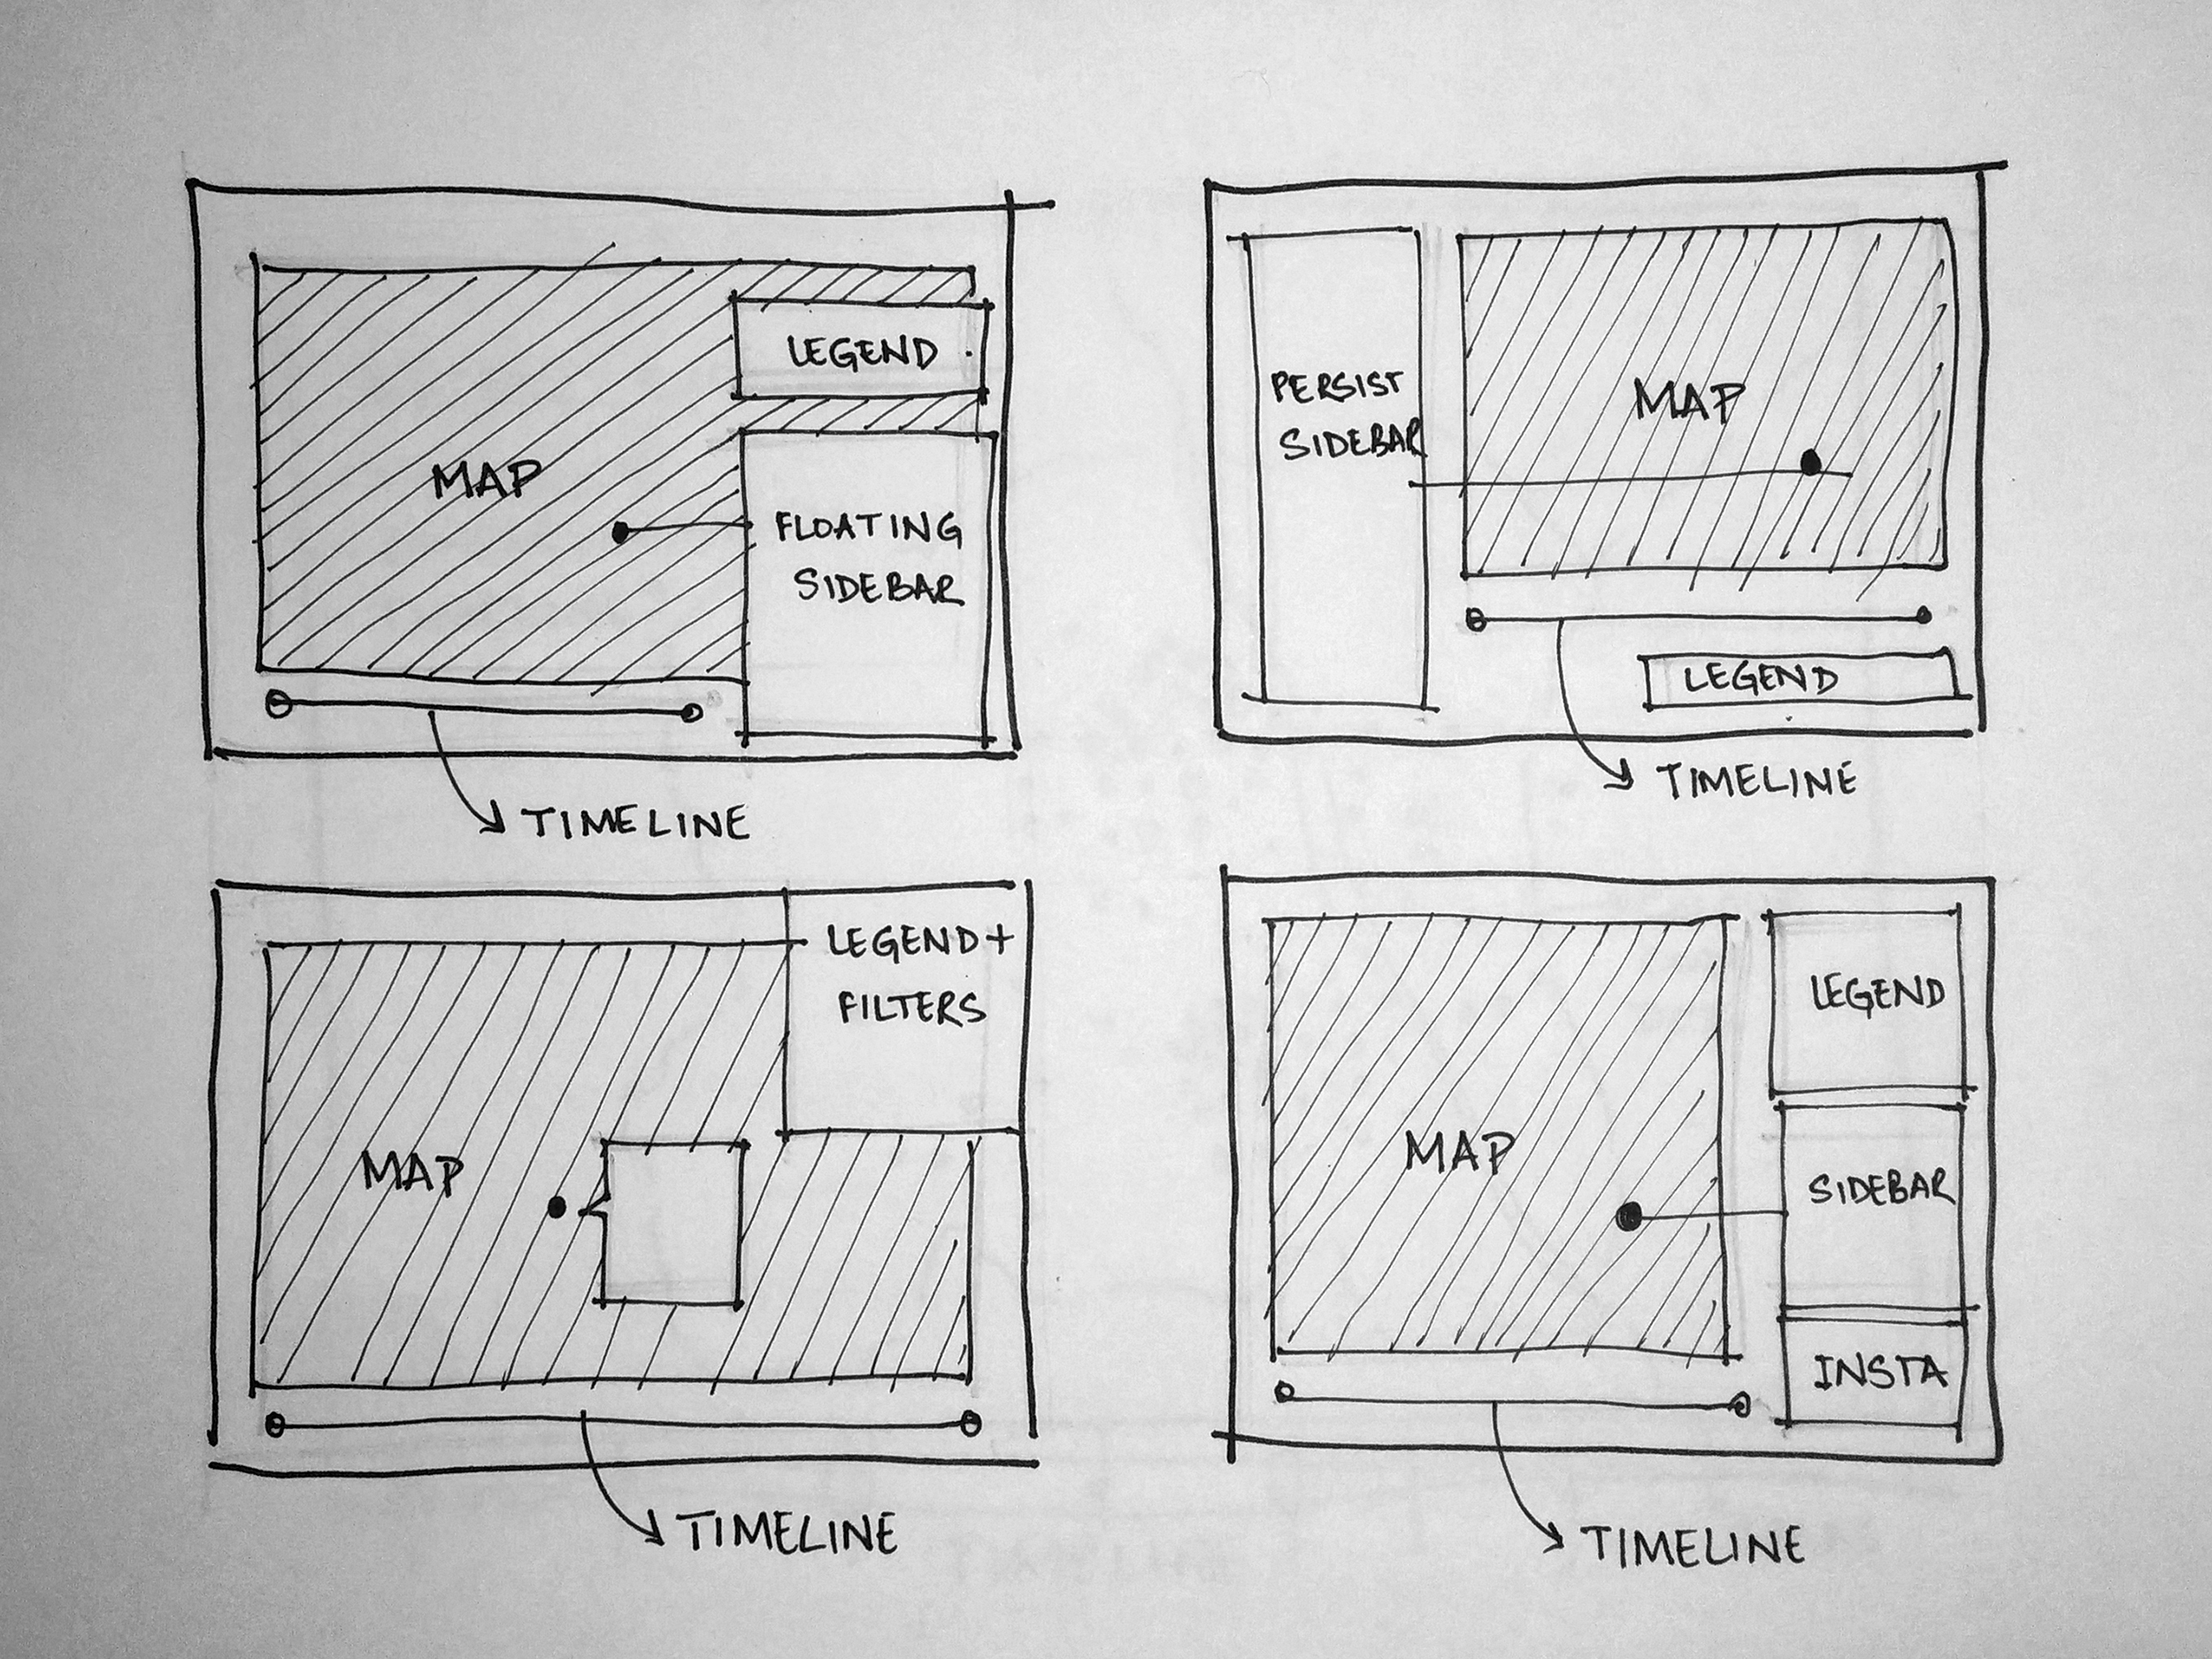 LEGEND
MAP
FLOATING
SIDEBAR
TIMELINE
PERSIST
SIDEBAR
MAP
LEGEND
TIMELINE
LEGEND+
FILTERS
MAP
TIMELINE
LEGEND
MAP
SIDEBAR
INSTA
TIMELINE